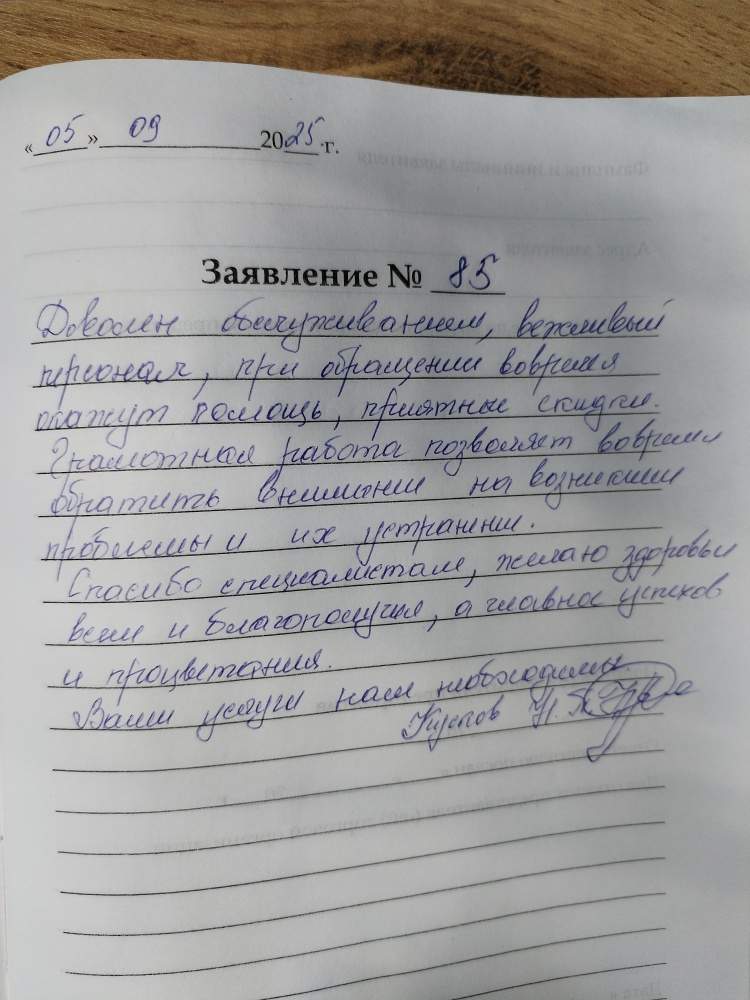 «05» 09 2025 г.
Заявление № 85
Доволен обслуживанием, вежливый
персонал, при обращении вовремя
окажут помощь, приятные скидки.
Грамотная работа позволяет вовремя
обратить внимании на возникшии
проблемы и их устрании.
Спасибо специалистам, желаю здоровья
всем и благополучия, а главное успехов
и процветания.
Ваши услуги нам необходимы.